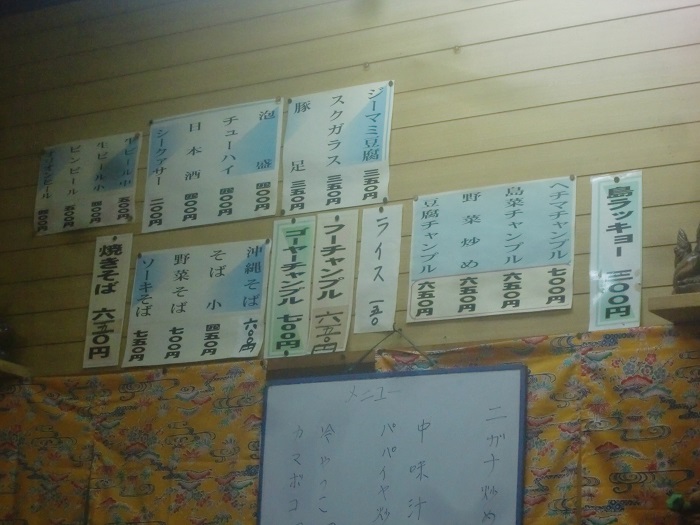 生ビール中 五〇〇円
生ビール小 四〇〇円
ビンビール 五〇〇円
泡盛 四〇〇円
チューハイ 四〇〇円
日本酒 四〇〇円
シークァサー 二〇〇円
ジーマミ豆腐 三五〇円
スクガラス 三五〇円
豚足 三五〇円
ヘチマチャンプル 七〇〇円
島菜チャンプル 六五〇円
野菜炒め 六五〇円
豆腐チャンプル 六五〇円
島ラッキョー 三〇〇円
ライス 一五〇
フーチャンプル 六五〇円
ゴーヤーチャンプル 七〇〇円
沖縄そば 六〇〇円
そば小 四五〇円
野菜そば 七〇〇円
ソーキそば 七五〇円
焼きそば 六五〇円
メニュー
ニガナ炒め
中味汁
パパイヤ炒
冷やっこ
カマボコ